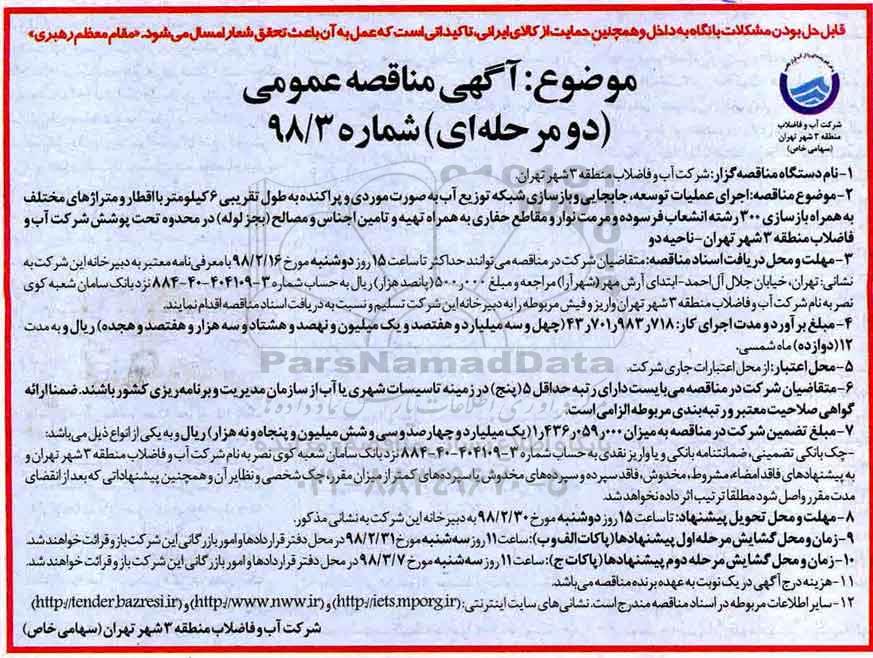 قابل حل بودن مشکلات با نگاه به داخل و همچنین حمایت از کالای ایرانی، تاکیداتی است که عمل به آن باعث تحقق شعار امسال می‌شود. «مقام معظم رهبری»
موضوع: آگهی مناقصه عمومی
(دو مرحله‌ای) شماره ۹۸/۳
شرکت آب و فاضلاب
منطقه ۳ شهر تهران
(سهامی خاص)
۱- نام دستگاه مناقصه گزار: شرکت آب و فاضلاب منطقه ۳ شهر تهران.
۲- موضوع مناقصه: اجرای عملیات توسعه، جابجایی و بازسازی شبکه توزیع آب به صورت موردی و پراکنده به طول تقریبی ۶ کیلومتر با اقطار و متراژهای مختلف
به همراه بازسازی ۳۰۰ رشته انشعاب فرسوده و مرمت نوار و مقاطع حفاری به همراه تهیه و تامین اجناس و مصالح (بجز لوله) در محدوه تحت پوشش شرکت آب و
فاضلاب منطقه ۳ شهر تهران - ناحیه دو
۳- مهلت و محل دریافت اسناد مناقصه: متقاضیان شرکت در مناقصه می‌توانند حداکثر تا ساعت ۱۵ روز دوشنبه مورخ ۹۸/۲/۱۶ با معرفی نامه معتبر به دبیرخانه این شرکت به
نشانی: تهران، خیابان جلال آل‌احمد- ابتدای آرش مهر (شهرآرا) مراجعه و مبلغ ۵۰۰٫۰۰۰ (پانصد هزار) ریال به حساب شماره ۳-۴۰۴۱۰۹-۴۰-۸۸۴ نزد بانک سامان شعبه کوی
نصر به نام شرکت آب و فاضلاب منطقه ۳ شهر تهران واریز و فیش مربوطه را به دبیرخانه این شرکت تسلیم و نسبت به دریافت اسناد مناقصه اقدام نمایند.
۴- مبلغ برآورد و مدت اجرای کار: ۴۳٫۷۰۱٫۹۸۳٫۷۱۸ (چهل و سه میلیارد و هفتصد و یک میلیون و نهصد و هشتاد و سه هزار و هفتصد و هجده) ریال و به مدت
۱۲ (دوازده) ماه شمسی.
۵- محل اعتبار: از محل اعتبارات جاری شرکت.
۶- متقاضیان شرکت در مناقصه می‌بایست دارای رتبه حداقل ۵ (پنج) در زمینه تاسیسات شهری یا آب از سازمان مدیریت و برنامه‌ریزی کشور باشند. ضمنا ارائه
گواهی صلاحیت معتبر و رتبه‌بندی مربوطه الزامی است.
۷- مبلغ تضمین شرکت در مناقصه به میزان ۱٫۴۳۶٫۰۵۹٫۰۰۰ (یک میلیارد و چهارصد و سی و شش میلیون و پنجاه و نه هزار) ریال و به یکی از انواع ذیل می‌باشد:
-چک بانکی تضمینی، ضمانتنامه بانکی و یا واریز نقدی به حساب شماره ۳-۴۰۴۱۰۹-۴۰-۸۸۴ نزد بانک سامان شعبه کوی نصر به نام شرکت آب و فاضلاب منطقه ۳ شهر تهران و
به پیشنهادهای فاقد امضاء، مشروط، مخدوش، فاقد سپرده و سپرده‌های مخدوش یا سپرده‌های کمتر از میزان مقرر، چک شخصی و نظایر آن و همچنین پیشنهاداتی که بعد از انقضای
مدت مقرر واصل شود مطلقا ترتیب اثر داده نخواهد شد.
۸- مهلت و محل تحویل پیشنهاد: تا ساعت ۱۵ روز دوشنبه مورخ ۹۸/۲/۳۰ به دبیرخانه این شرکت به نشانی مذکور.
۹- زمان و محل گشایش مرحله اول پیشنهادها (پاکات الف و ب): ساعت ۱۱ روز سه‌شنبه مورخ ۹۸/۲/۳۱ در محل دفتر قراردادها و امور بازرگانی این شرکت باز و قرائت خواهند شد.
۱۰- زمان و محل گشایش مرحله دوم پیشنهادها (پاکات ج): ساعت ۱۱ روز سه‌شنبه مورخ ۹۸/۳/۷ در محل دفتر قراردادها و امور بازرگانی این شرکت باز و قرائت خواهند شد.
۱۱- هزینه درج آگهی در یک نوبت به عهده برنده مناقصه می‌باشد.
۱۲- سایر اطلاعات مربوطه در اسناد مناقصه مندرج است. نشانی‌های سایت اینترنتی: (http://iets.mporg.ir) و (http://www.nww.ir) و (http://tender.bazresi.ir)
شرکت آب و فاضلاب منطقه ۳ شهر تهران (سهامی خاص)
ParsNamadData